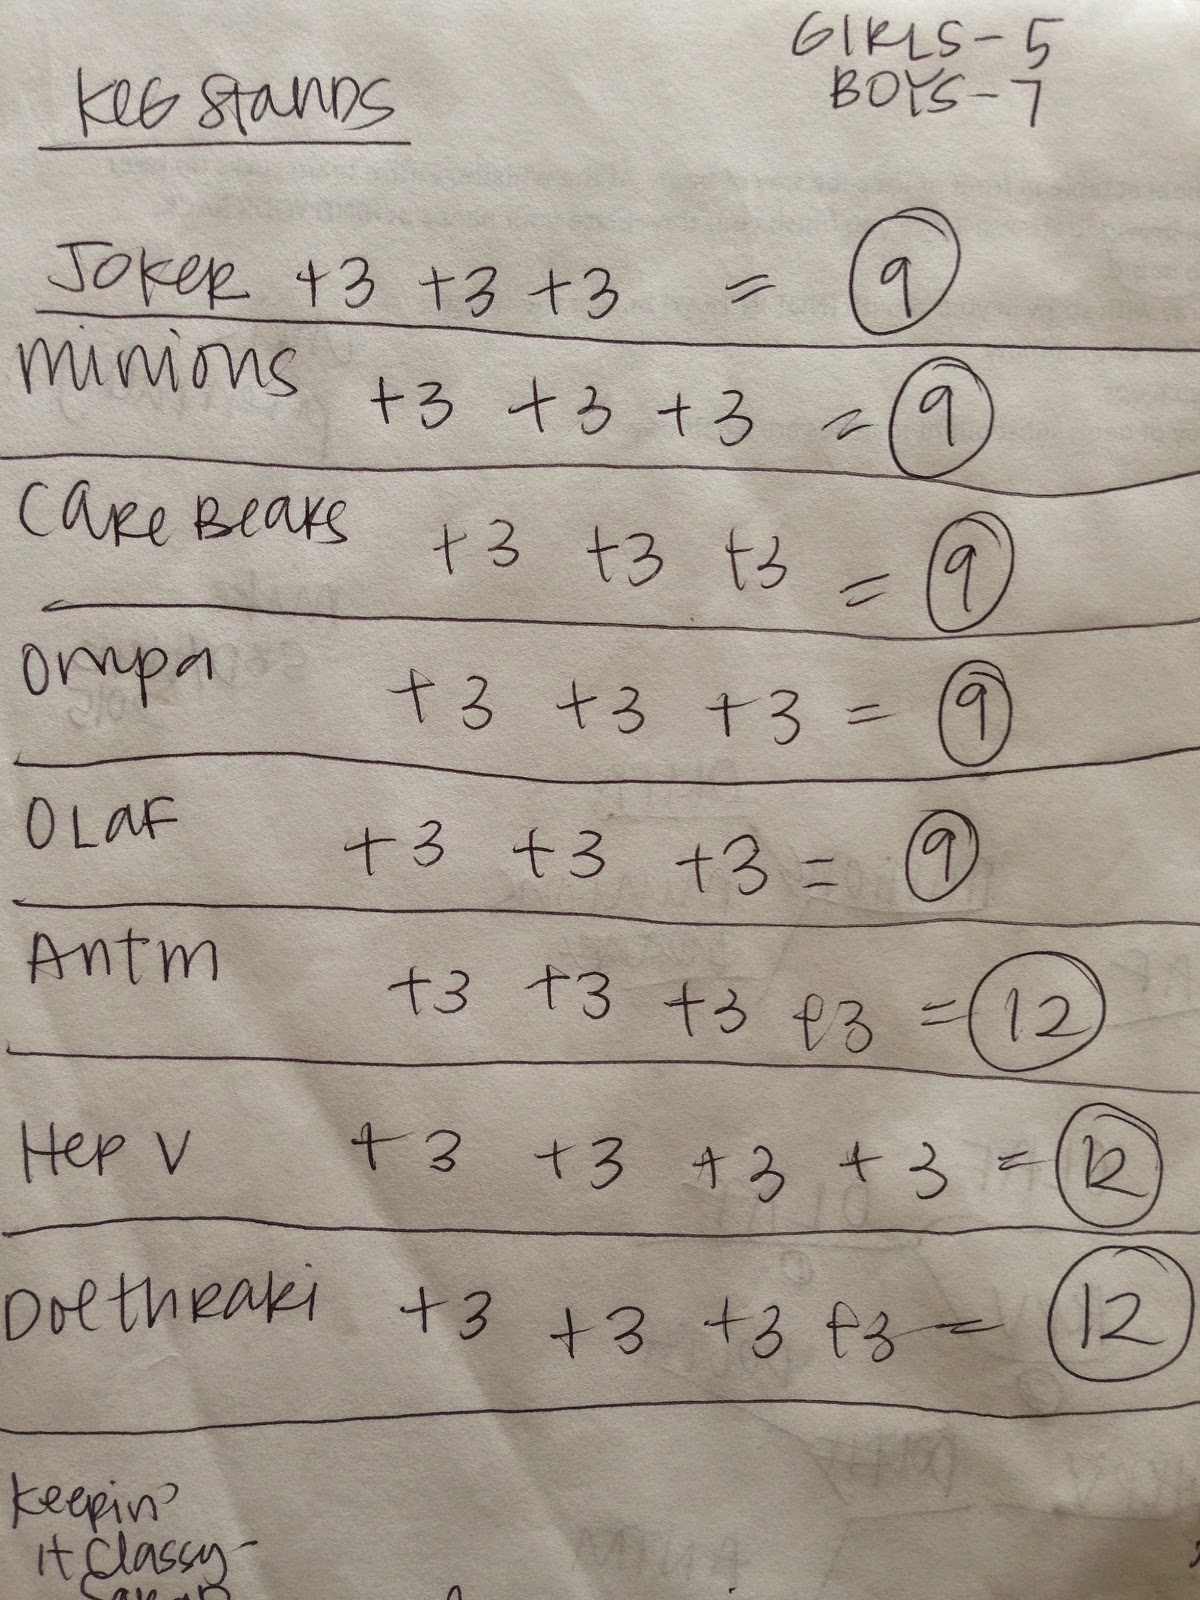 GIRLS-5
BOYS-7
KEG StanDS
JOKER +3 +3 +3 = 9
minions +3 +3 +3 = 9
CARe BeaRS +3 +3 +3 = 9
Ompa +3 +3 +3 = 9
OLaF +3 +3 +3 = 9
Antm +3 +3 +3 +3 = 12
Hep V +3 +3 +3 +3 = 12
Doethraki +3 +3 +3 +3 = 12
Keepin'
it Classy-